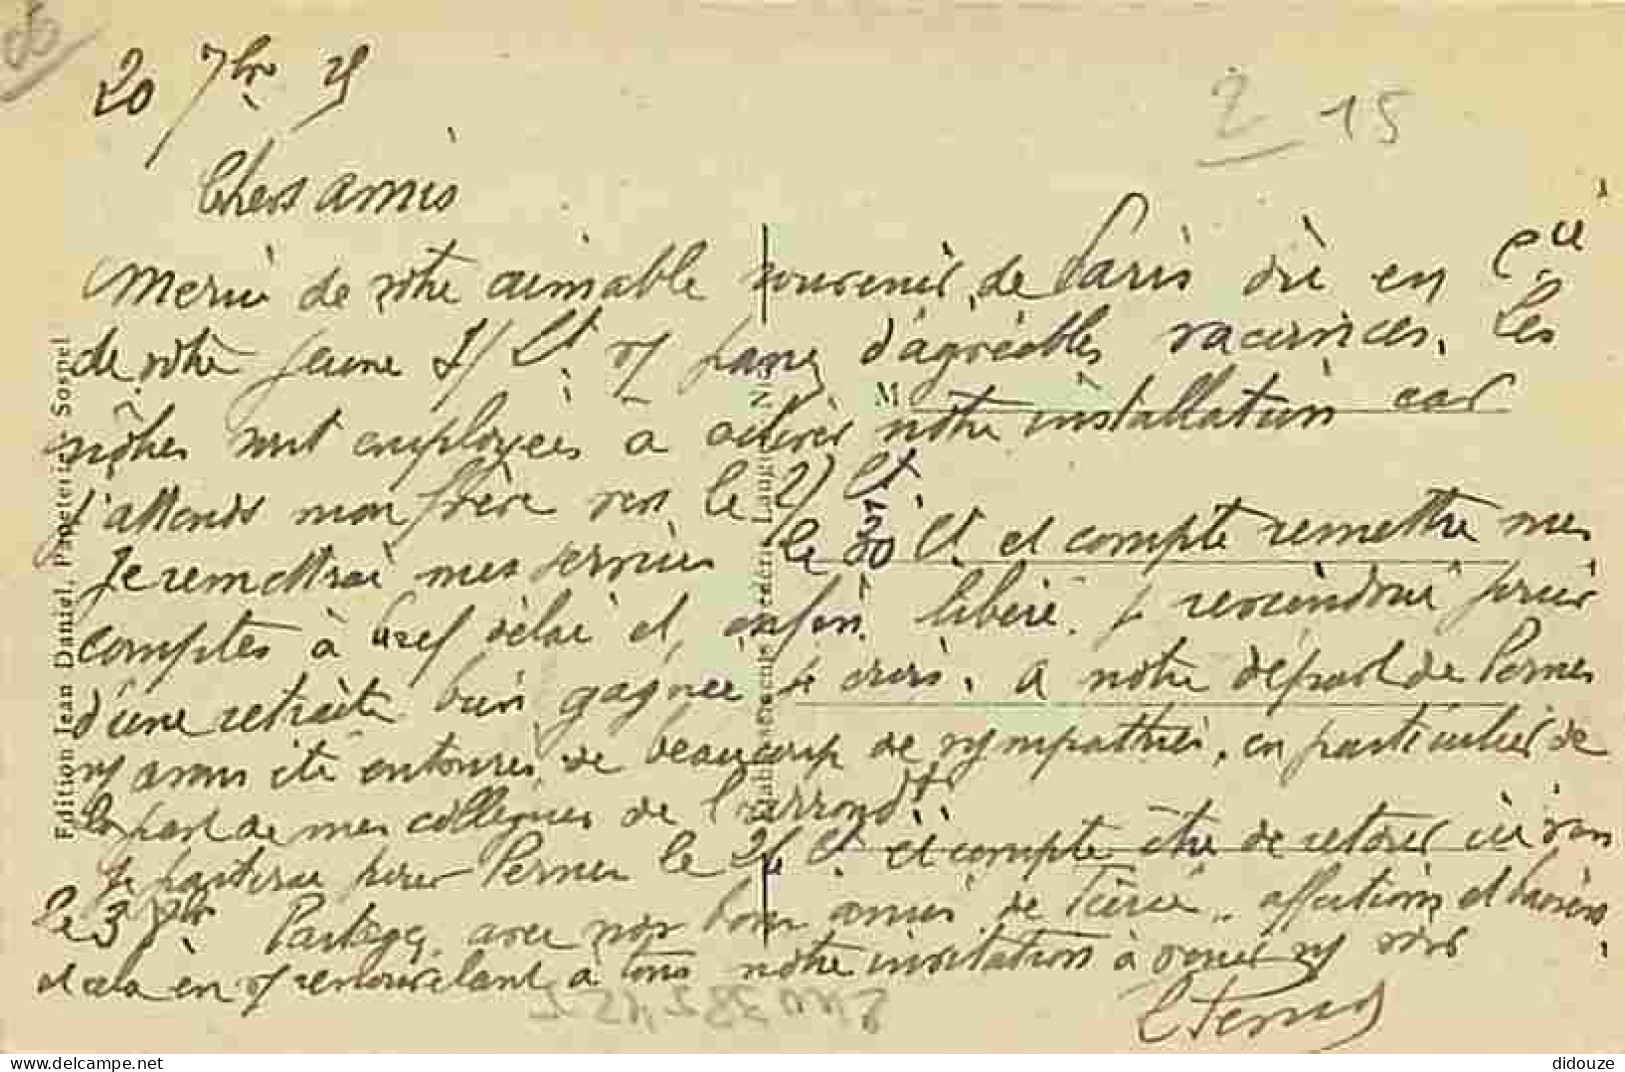 20 7bre 25
2 15
Chers amis
Merci de votre aimable souvenir de Paris où en Cie
de votre jeune vs passez d'agréables vacances. Les
nôtres sont employées à activer notre installation car
j'attends mon frère vers le 27 Ct.
Je remettrai mes service le 30 Ct et compte remettre mes
comptes à bref délai et enfin libéré. je reviendrai jouir
d'une retraite bien gagnée je crois. A notre départ de Pernes
ns avons été entourés de beaucoup de sympathies, en particulier de
la part de mes collègues de l'arrondt.
Je partirai pour Pernes le 26 Ct et compte être de retour ici
le 3 Partagez avec nos bons amis de affections et baisers
et cela en vs renouvelant à tous notre invitation à venir ns voir
Edition Jean Daniel, Papeteries, Sospel
M
didouze